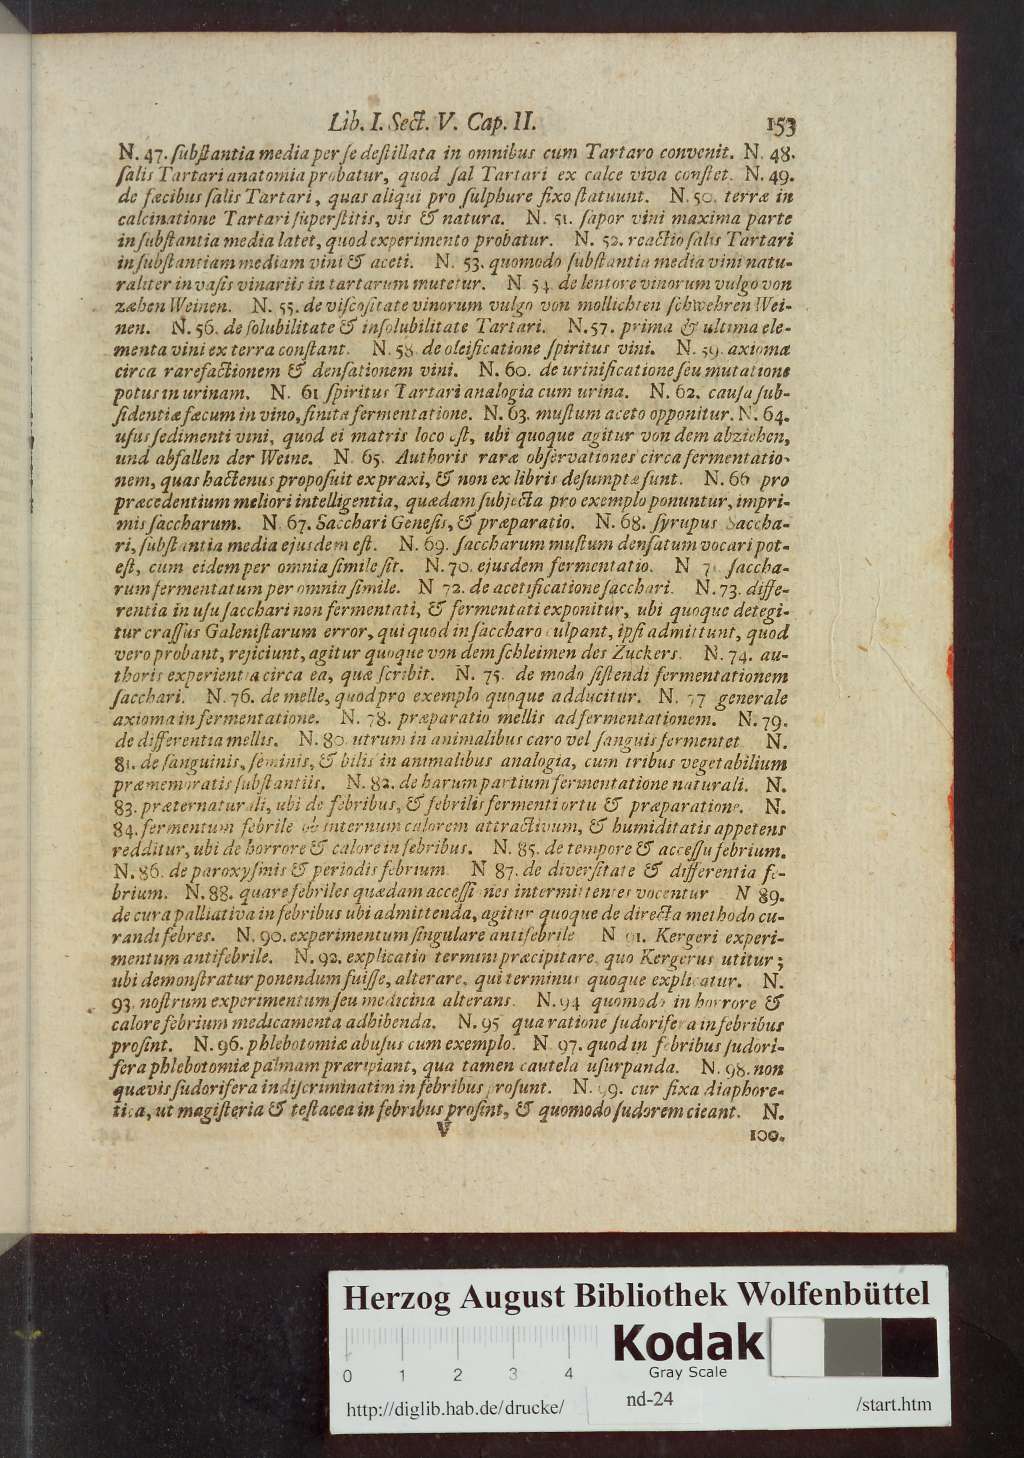 Lib. I. Sect. V. Cap. II. 153
N. 47. ſubſtantia media per ſe deſtillata in omnibus cum Tartaro convenit. N. 48.
ſalis Tartari anatomia probatur, quod ſal Tartari ex calce viva conſtet. N. 49.
de fæcibus ſalis Tartari, quas aliqui pro ſulphure fixo ſtatuunt. N. 50. terræ in
calcinatione Tartari ſuperſtitis, vis & natura. N. 51. ſapor vini maxima parte
in ſubſtantia media latet, quod experimento probatur. N. 52. reactio ſalis Tartari
in ſubſtantiam mediam vini & aceti. N. 53. quomodo ſubſtantia media vini natu-
raliter in vaſis vinariis in tartarum mutetur. N. 54. de lentore vinorum vulgo von
zæhen Weinen. N. 55. de viſcoſitate vinorum vulgo von mollichten ſchwehren Wei-
nen. N. 56. de ſolubilitate & inſolubilitate Tartari. N. 57. prima & ultima ele-
menta vini ex terra conſtant. N. 58. de oleificatione ſpiritus vini. N. 59. axioma
circa rarefactionem & denſationem vini. N. 60. de urinificatione ſeu mutatione
potus in urinam. N. 61 ſpiritus Tartari analogia cum urina. N. 62. cauſa ſub-
ſidentiæ fæcum in vino, finita fermentatione. N. 63. muſtum aceto opponitur. N. 64.
uſus ſedimenti vini, quod ei matris loco eſt, ubi quoque agitur von dem abziehen,
und abfallen der Weine. N. 65. Authoris raræ obſervationes circa fermentatio-
nem, quas hactenus propoſuit ex praxi, & non ex libris deſumptæ ſunt. N. 66 pro
præcedentium meliori intelligentia, quædam ſubjecta pro exemplo ponuntur, impri-
mis ſaccharum. N. 67. Sacchari Geneſis, & præparatio. N. 68. ſyrupus Saccha-
ri, ſubſtantia media ejusdem eſt. N. 69. ſaccharum muſtum denſatum vocari pot-
eſt, cum eidem per omnia ſimile ſit. N. 70. ejusdem fermentatio. N 71. ſaccha-
rum fermentatum per omnia ſimile. N 72. de acetificatione ſacchari. N. 73. diffe-
rentia in uſu ſacchari non fermentati, & fermentati exponitur, ubi quoque detegi-
tur craſſus Galeniſtarum error, qui quod in ſaccharo culpant, ipſi admittunt, quod
vero probant, rejiciunt, agitur quoque von dem ſchleimen des Zuckers. N. 74. au-
thoris experientia circa ea, quæ ſcribit. N. 75. de modo ſiſtendi fermentationem
ſacchari. N. 76. de melle, quod pro exemplo quoque adducitur. N. 77 generale
axioma in fermentatione. N. 78. præparatio mellis ad fermentationem. N. 79.
de differentia mellis. N. 80. utrum in animalibus caro vel ſanguis fermentet N.
81. de ſanguinis, ſeminis, & bilis in animalibus analogia, cum tribus vegetabilium
præmemoratis ſubſtantiis. N. 82. de harum partium fermentatione naturali. N.
83. præternaturali, ubi de febribus, & febrilis fermenti ortu & præparatione. N.
84. fermentum febrile ob internum calorem attractivum, & humiditatis appetens
redditur, ubi de horrore & calore in febribus. N. 85. de tempore & acceſſu febrium.
N. 86. de paroxyſmis & periodis febrium. N 87. de diverſitate & differentia fe-
brium. N. 88. quare febriles quædam acceſſiones intermittentes vocentur N 89.
de cura palliativa in febribus ubi admittenda, agitur quoque de directa methodo cu-
randi febres. N. 90. experimentum ſingulare antifebrile N 91. Kergeri experi-
mentum antifebrile. N. 92. explicatio termini præcipitare, quo Kergerus utitur;
ubi demonſtratur ponendum fuiſſe, alterare, qui terminus quoque explicatur. N.
93. noſtrum experimentum ſeu medicina alterans. N. 94 quomodo in horrore &
calore febrium medicamenta adhibenda. N. 95 qua ratione ſudorifera in febribus
proſint. N. 96. phlebotomiæ abuſus cum exemplo. N 97. quod in febribus ſudori-
fera phlebotomiæ palmam præripiant, qua tamen cautela uſurpanda. N. 98. non
quævis ſudorifera indiſcriminatim in febribus proſunt. N. 99. cur fixa diaphore-
tica, ut magiſteria & teſtacea in febribus proſint, & quomodo ſudorem cieant. N.
V 100.
Herzog August Bibliothek Wolfenbüttel
Kodak
Gray Scale
0 1 2 3 4
http://diglib.hab.de/drucke/ nd-24 /start.htm